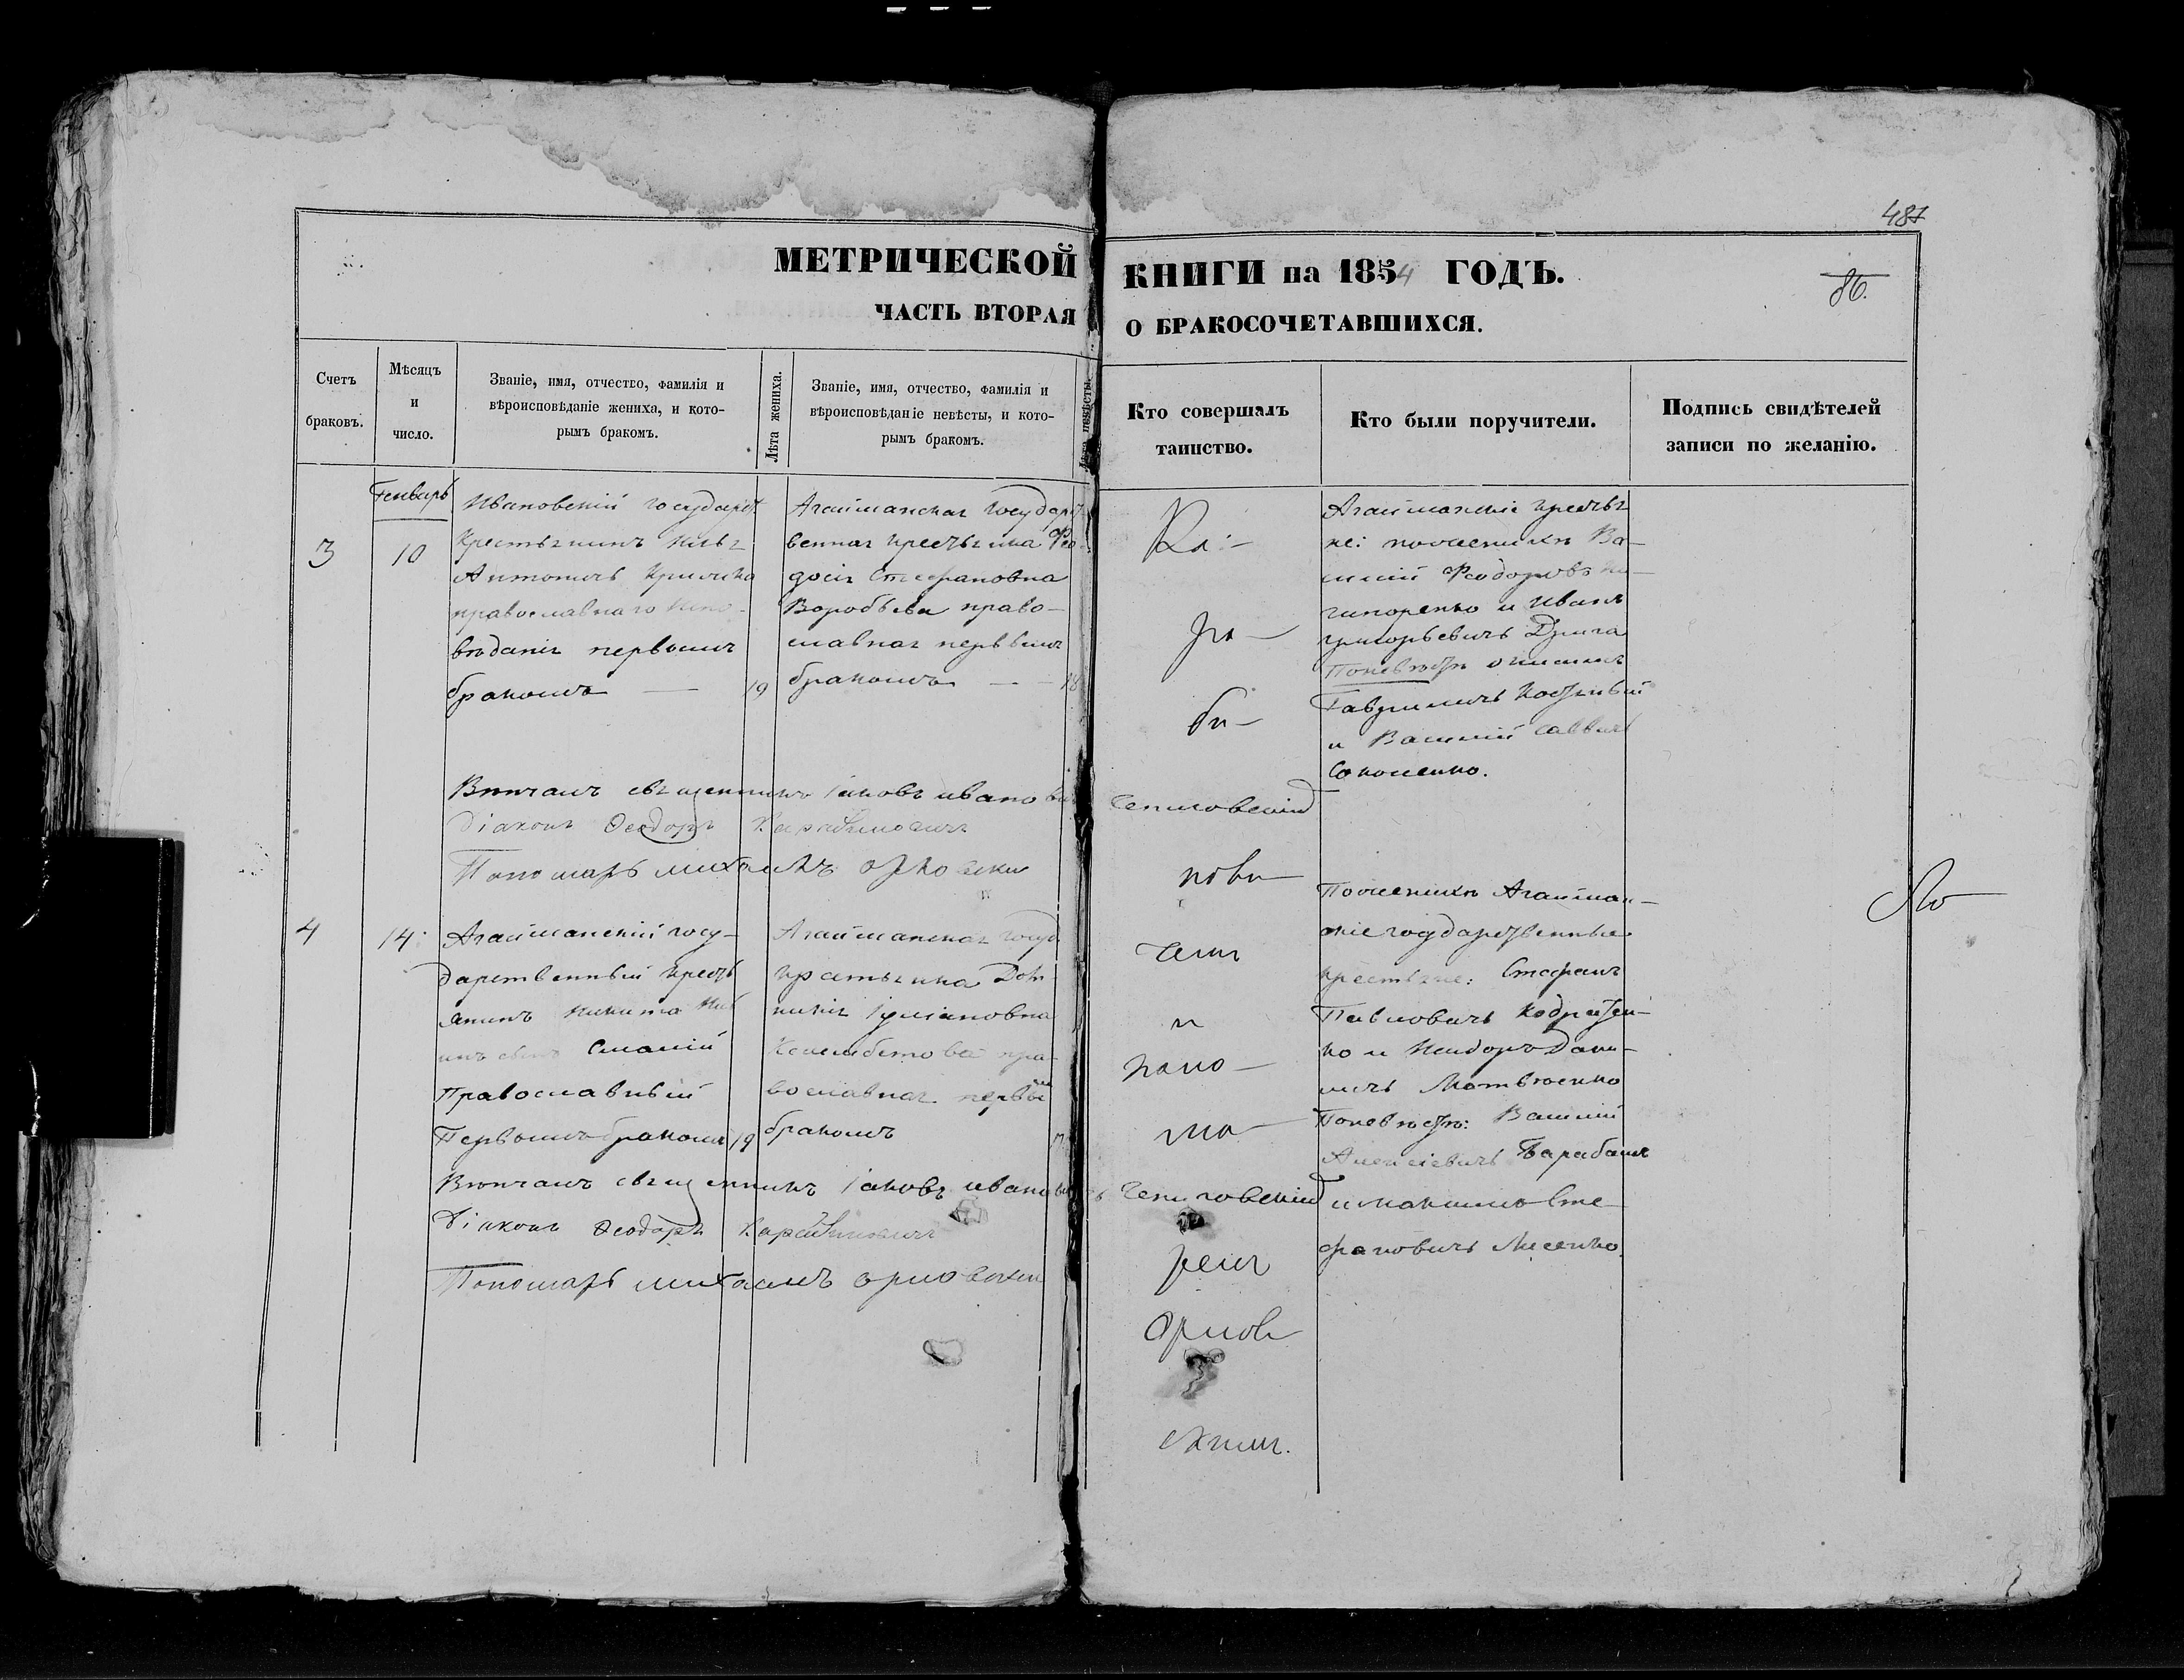 487
МЕТРИЧЕСКОЙ КНИГИ на 1854 ГОДЪ.
86.
ЧАСТЬ ВТОРАЯ О БРАКОСОЧЕТАВШИХСЯ.
Счетъ браковъ.
Мѣсяцъ и число.
Званіе, имя, отчество, фамилія и
вѣроисповѣданіе жениха, и кото-
рымъ бракомъ.
Лѣта жениха.
Званіе, имя, отчество, фамилія и
вѣроисповѣданіе невѣсты, и кото-
рымъ бракомъ.
Лѣта невѣсты.
Кто совершалъ
таинство.
Кто были поручители.
Подпись свидѣтелей
записи по желанію.
Генварь
3
10
Ивановскій государст
Крестьянинъ Илья
Антоновъ
православнаго испо-
вѣданія первымъ
бракомъ — 19
Агайманская государст
венная крестьянка Фео
досія Стефановна
Воробьева право-
славная первымъ
бракомъ — — 18
Агайманскіе крестья
не: по женихѣ Ва-
силій Феодоровъ Не-
чипоренко и Иванъ
григорьевичъ Дрига
По невѣстѣ
Гавриловичъ
и Василій Саввичъ
Соколенко.
Вѣнчалъ священникъ Іаковъ Ивановичъ Чепиговскій
Діаконъ Ѳеодоръ Карабиновичъ
Пономарь михаилъ орловскій
Ка:-
ра-
би-
нови-
чемъ
и
поно-
ма-
ремъ
Орлов-
скимъ.
4
14:
Агайманскій госу-
дарственный крест
янинъ Никита
Смалій
Православный
Первымъ бракомъ 19
Агайманская госуд
крестьянка Дом
никія Іуліановна
пра-
вославная первы
бракомъ
По женихѣ Агайман-
скіе государственные
крестьяне: Стефанъ
Павловичъ Кодратен-
ко и Исидоръ Дани-
личъ Матвѣенко
По невѣстѣ: Василій
Алексіевичъ Барабашъ
и максимъ Сте-
фановичъ Лисенко.
Вѣнчалъ священникъ Іаковъ Ивановичъ Чепиговскій
Діаконъ Ѳеодоръ Карабиновичъ
Пономарь михаилъ орловскій